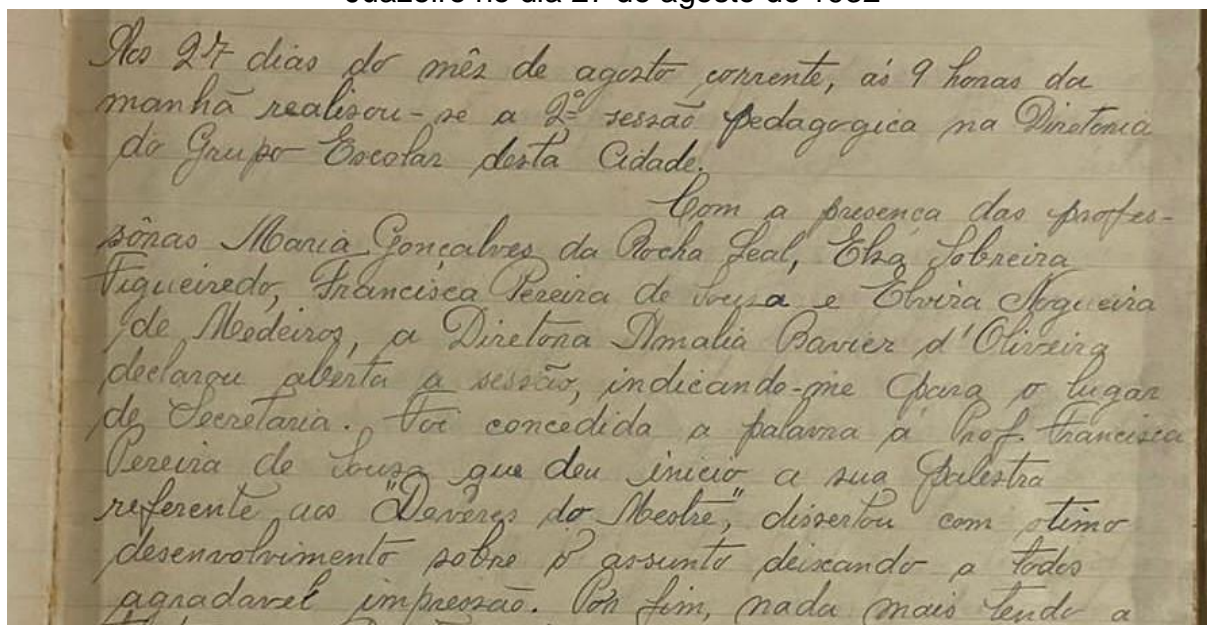 Aos 27 dias do mês de agosto corrente, ás 9 horas da
manhã realisou-se a 2ª sessão pedagogica na Diretoria
do Grupo Escolar desta Cidade.
Com a presença das profes-
sôras Maria Gonçalves da Rocha Leal, Elza Sobreira
Figueiredo, Francisca Pereira de Sousa e Elvira Nogueira
de Medeiros, a Diretora Amalia Xavier d'Oliveira
declarou aberta a sessão, indicando-me para o lugar
de Secretaria. Foi concedida a palavra á Prof. Francisca
Pereira de Sousa que deu inicio a sua palestra
referente aos "Devêres do Mestre", dissertou com otimo
desenvolvimento sobre o assunto deixando a todos
agradavel impressão. Por fim, nada mais tendo a